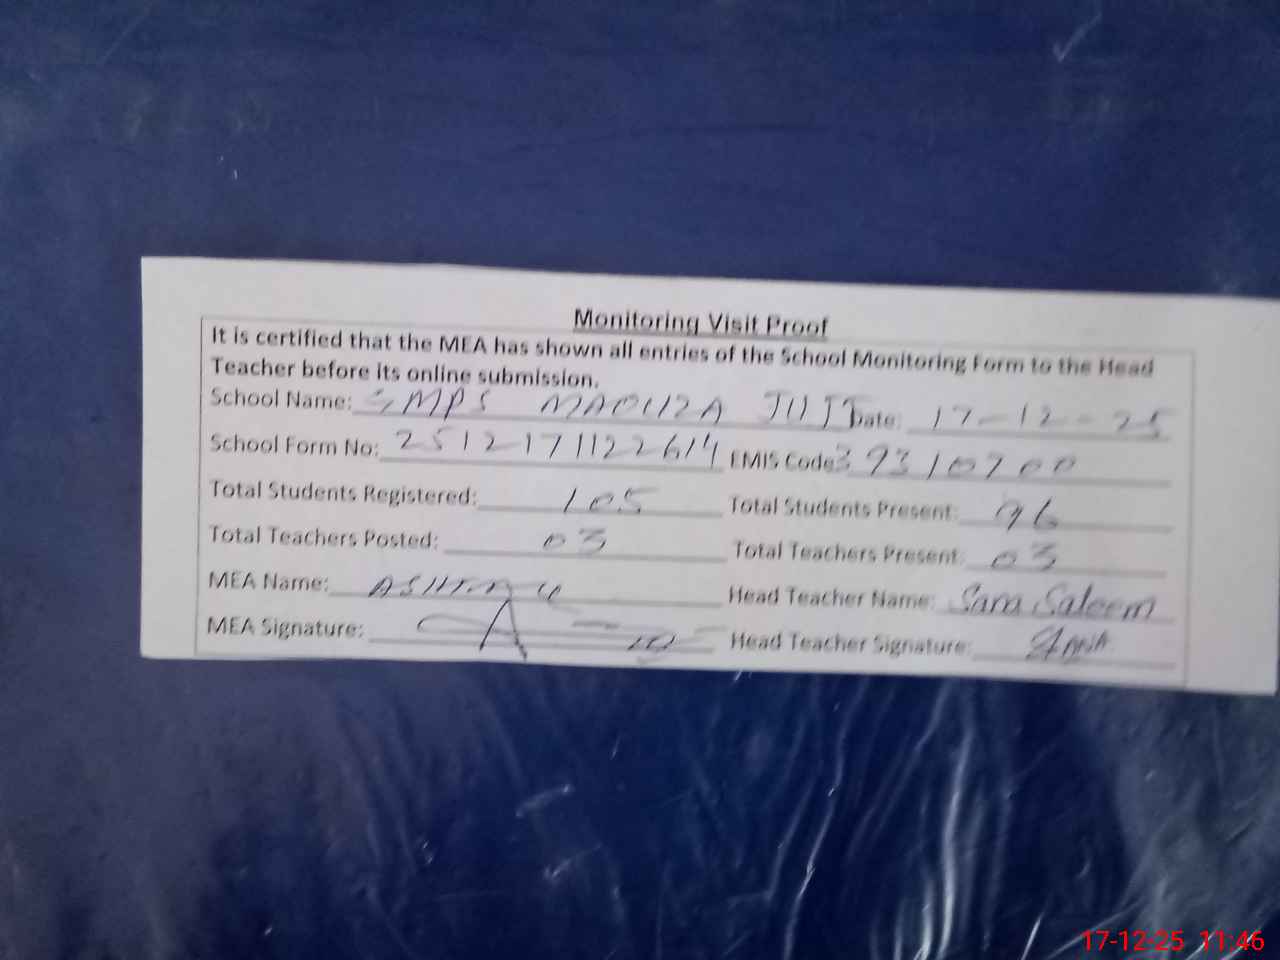 Monitoring Visit Proof
It is certified that the MEA has shown all entries of the School Monitoring Form to the Head
Teacher before its online submission.
School Name: GMPS Date: 17-12-25
School Form No: 2512171122614 EMIS Code 39310700
Total Students Registered: 105 Total Students Present: 96
Total Teachers Posted: 03 Total Teachers Present: 03
MEA Name: Head Teacher Name: Sara Saleem
MEA Signature: Head Teacher Signature:
17-12-25 11:46